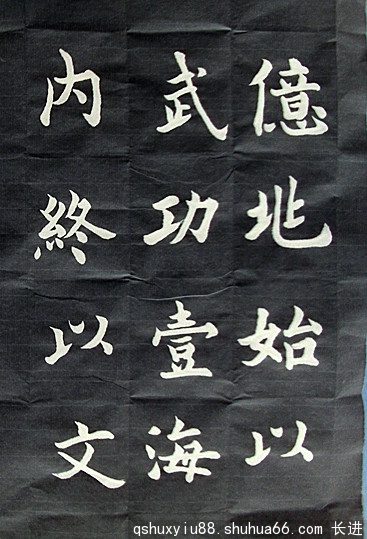 億兆始以
武功壹海
内終以文
qshuxyiu88.shuhua66.com 长进